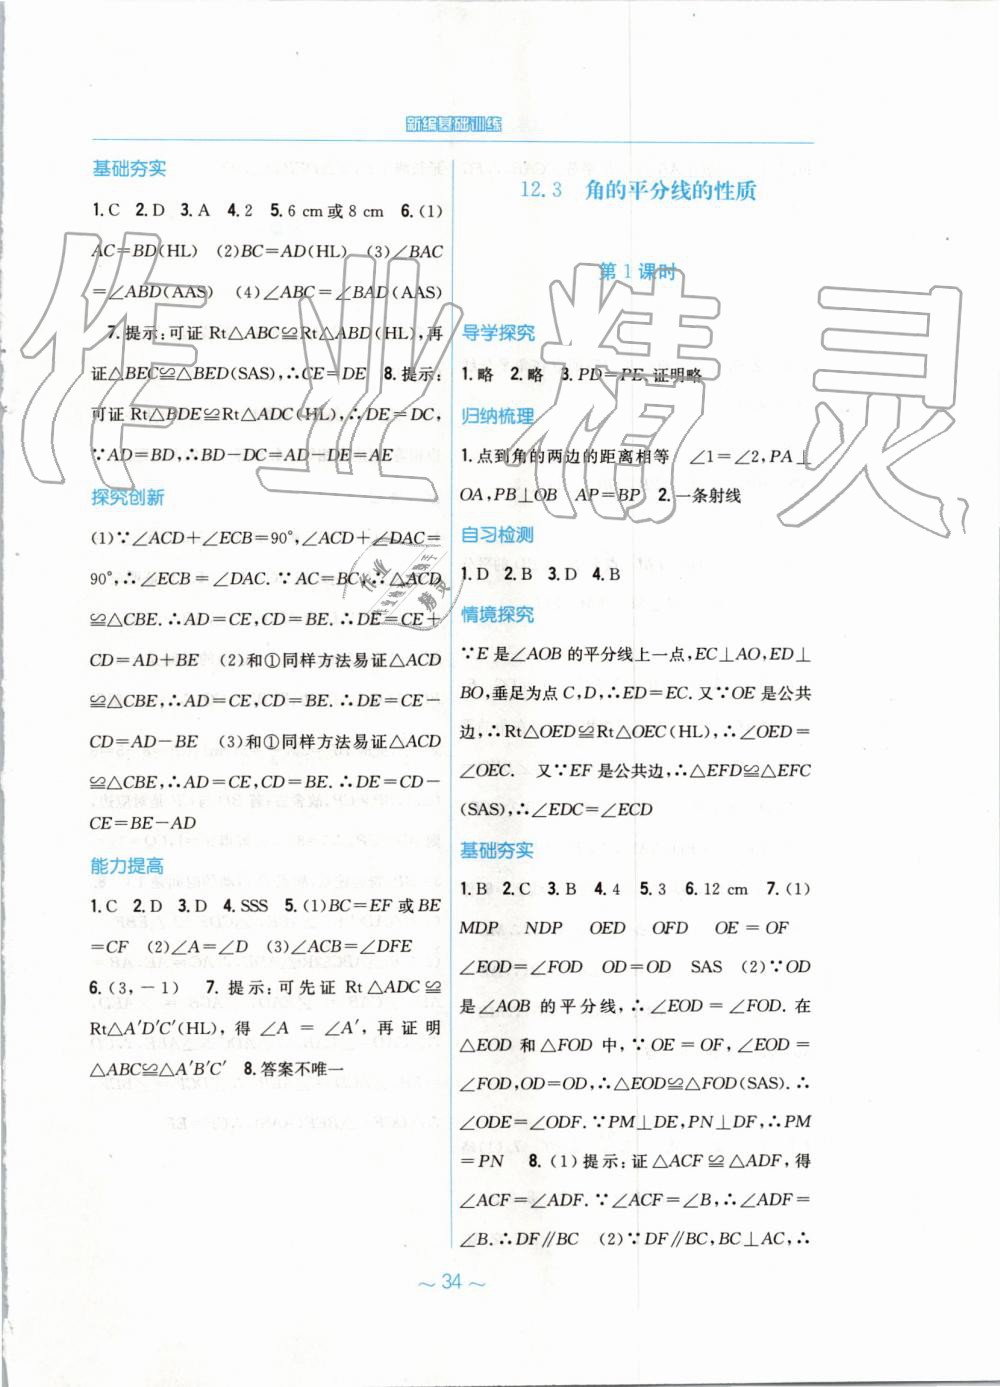 新编基础训练
基础夯实
1.C 2.D 3.A 4.2 5.6 cm或8 cm 6.(1)
AC=BD(HL) (2)BC=AD(HL) (3)∠BAC
=∠ABD(AAS) (4)∠ABC=∠BAD(AAS)
7.提示:可证Rt△ABC≌Rt△ABD(HL),再
证△BEC≌△BED(SAS),∴CE=DE 8.提示:
可证Rt△BDE≌Rt△ADC(HL),∴DE=DC,
∵AD=BD,∴BD-DC=AD-DE=AE
探究创新
(1)∵∠ACD+∠ECB=90°,∠ACD+∠DAC=
90°,∴∠ECB=∠DAC.∵AC=BC,∴△ACD
≌△CBE.∴AD=CE,CD=BE.∴DE=CE+
CD=AD+BE (2)和①同样方法易证△ACD
≌△CBE,∴AD=CE,CD=BE.∴DE=CE-
CD=AD-BE (3)和①同样方法易证△ACD
≌△CBE,∴AD=CE,CD=BE.∴DE=CD-
CE=BE-AD
能力提高
1.C 2.D 3.D 4.SSS 5.(1)BC=EF或BE
=CF (2)∠A=∠D (3)∠ACB=∠DFE
6.(3,-1) 7.提示:可先证Rt△ADC≌
Rt△A′D′C′(HL),得∠A=∠A′,再证明
△ABC≌△A′B′C′ 8.答案不唯一
12.3 角的平分线的性质
第1课时
导学探究
1.略 2.略 3.PD=PE,证明略
归纳梳理
1.点到角的两边的距离相等 ∠1=∠2,PA⊥
OA,PB⊥OB AP=BP 2.一条射线
自习检测
1.D 2.B 3.D 4.B
情境探究
∵E是∠AOB的平分线上一点,EC⊥AO,ED⊥
BO,垂足为点C,D,∴ED=EC.又∵OE是公共
边,∴Rt△OED≌Rt△OEC(HL),∴∠OED=
∠OEC. 又∵EF是公共边,∴△EFD≌△EFC
(SAS),∴∠EDC=∠ECD
基础夯实
1.B 2.C 3.B 4.4 5.3 6.12 cm 7.(1)
MDP NDP OED OFD OE=OF
∠EOD=∠FOD OD=OD SAS (2)∵OD
是∠AOB的平分线,∴∠EOD=∠FOD.在
△EOD和△FOD中,∵OE=OF,∠EOD=
∠FOD,OD=OD,∴△EOD≌△FOD(SAS).∴
∠ODE=∠ODF.∵PM⊥DE,PN⊥DF,∴PM
=PN 8.(1)提示:证△ACF≌△ADF,得
∠ACF=∠ADF.∵∠ACF=∠B,∴∠ADF=
∠B.∴DF∥BC (2)∵DF∥BC,BC⊥AC,∴
~34~
作业精灵